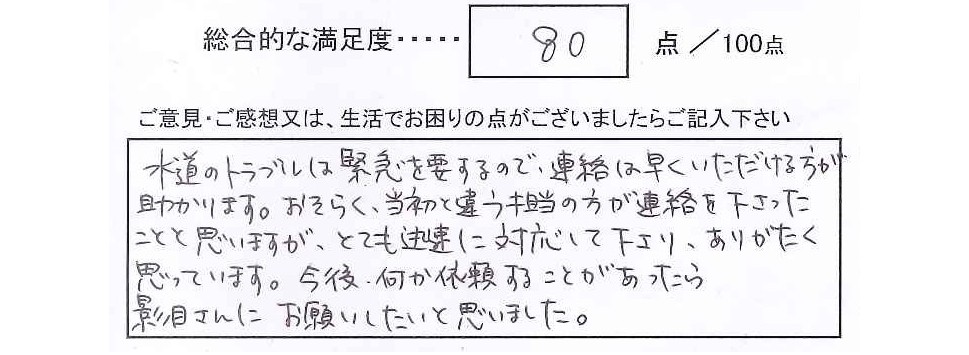 総合的な満足度・・・・・ 80 点 ／100点
ご意見・ご感想又は、生活でお困りの点がございましたらご記入下さい
水道のトラブルは緊急を要するので、連絡は早くいただける方が
助かります。おそらく、当初と違う担当の方が連絡を下さった
ことと思いますが、とても迅速に対応して下さり、ありがたく
思っています。今後、何か依頼することがあったら
影目さんに お願いしたいと思いました。